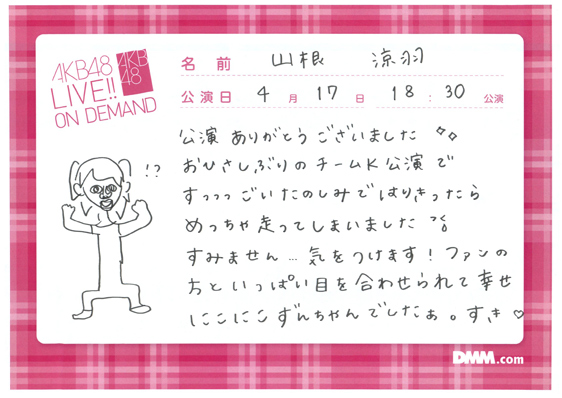 AKB48
LIVE!!
ON DEMAND
AKB
48
名前 山根 涼羽
公演日 4月17日 18:30公演
公演ありがとうございました
おひさしぶりのチームK公演で
すっっっごいたのしみではりきったら
めっちゃ走ってしまいました
すみません…気をつけます!ファンの
方といっぱい目を合わせられて幸せ
にこにこずんちゃんでしたぁ。すき♡
!?
DMM.com